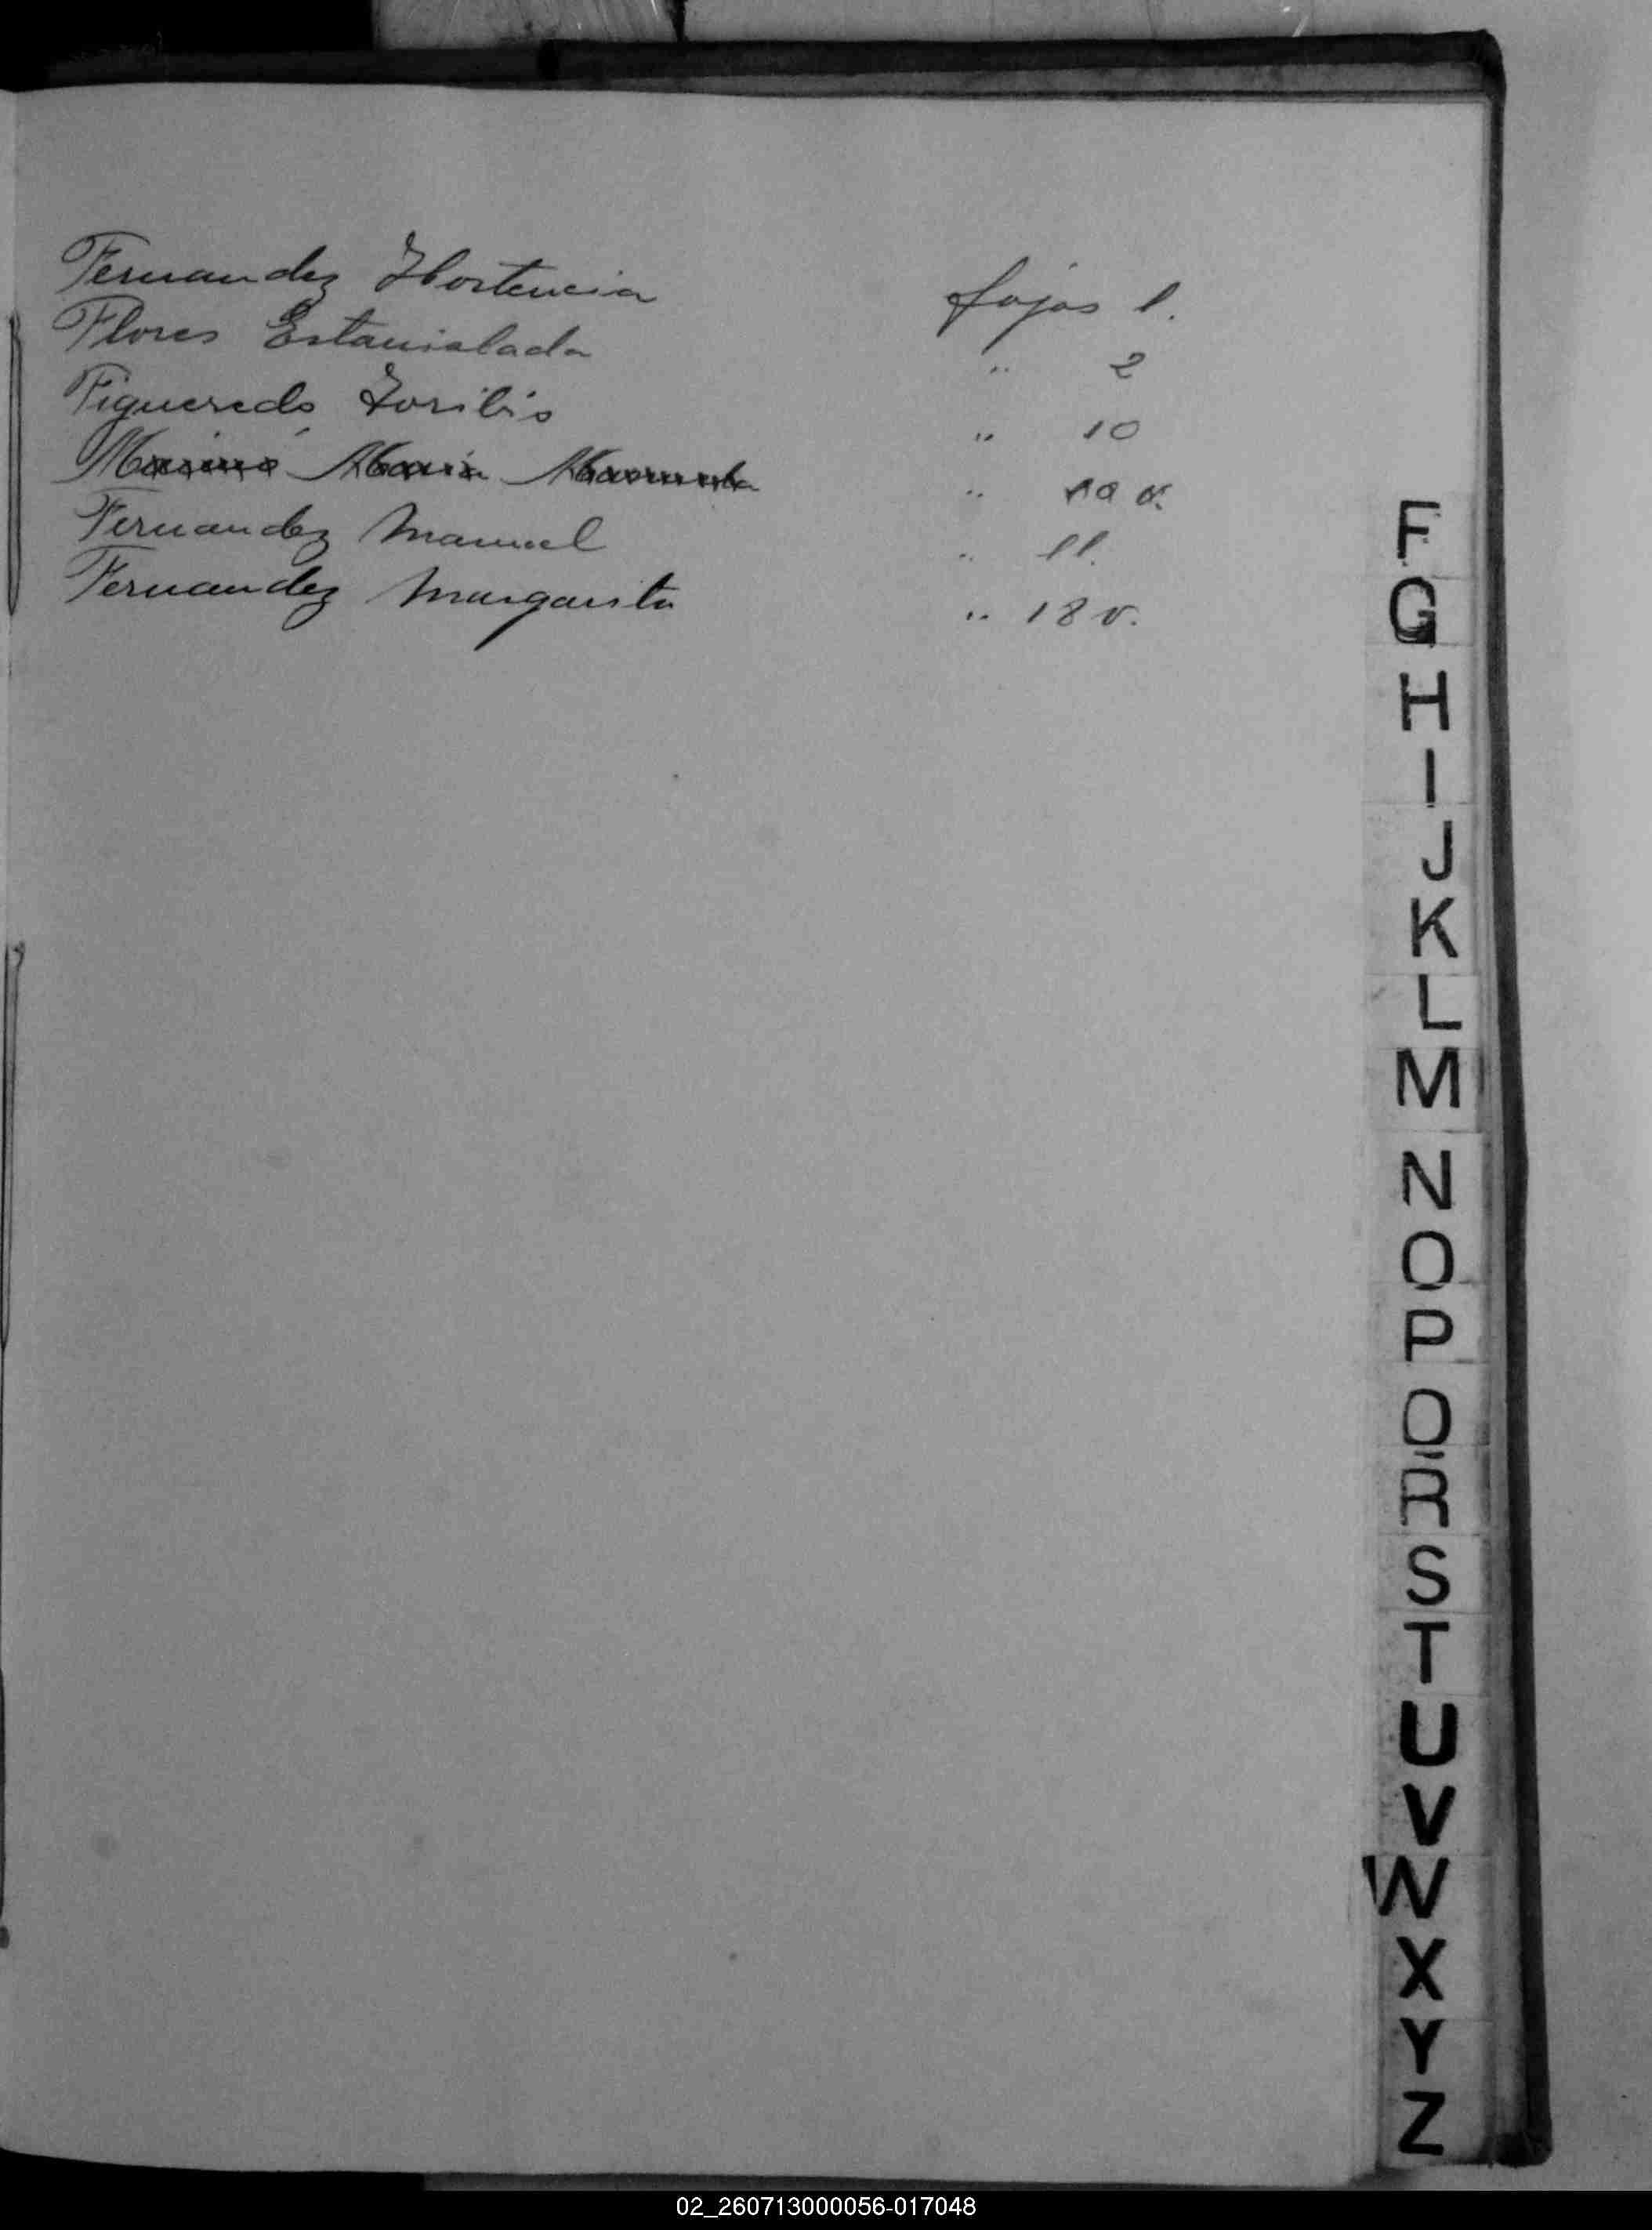 Fernandez Hortencia fojas 1.
Flores Estanislada " 2
Figueredo Toribio " 10
Maria "
Fernandez Manuel " 11.
Fernandez Margarita " 18 v.
F
G
H
I
J
K
L
M
N
O
P
Q
R
S
T
U
V
W
X
Y
Z
02_260713000056-017048